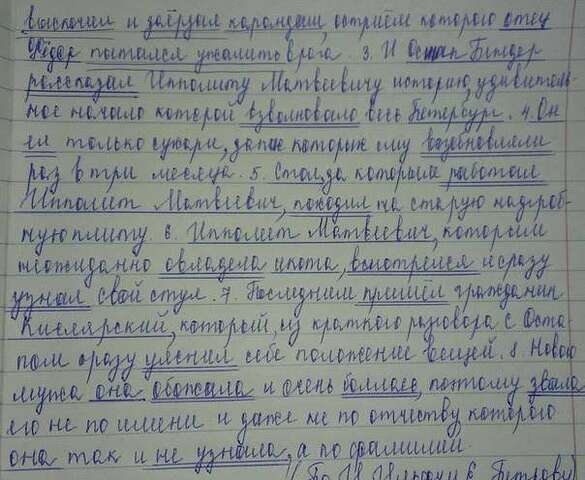 выскочил и заёрзал карандаш, остриём которого отец
Фёдор пытался ужалить врага. 3. И Остап Бендер
рассказал Ипполиту Матвеевичу историю, удивитель-
ное начало которой взволновало весь Петербург. 4. Он
ел только сухари, запас которых ему возобновляли
раз в три месяца. 5. Стол, за которым работал
Ипполит Матвеевич, походил на старую надгроб-
ную плиту. 6. Ипполит Матвеевич, которым
неожиданно овладела икота, всмотрелся и сразу
узнал свой стул. 7. Последним пришёл гражданин
Кислярский, который, из краткого разговора с Оста-
пом сразу уяснил себе положение вещей. 8. Нового
мужа она обожала и очень боялась, поэтому звала
его не по имени и даже не по отчеству которого
она так и не узнала, а по фамилии.
(По И. Ильфу и Е. Петрову)